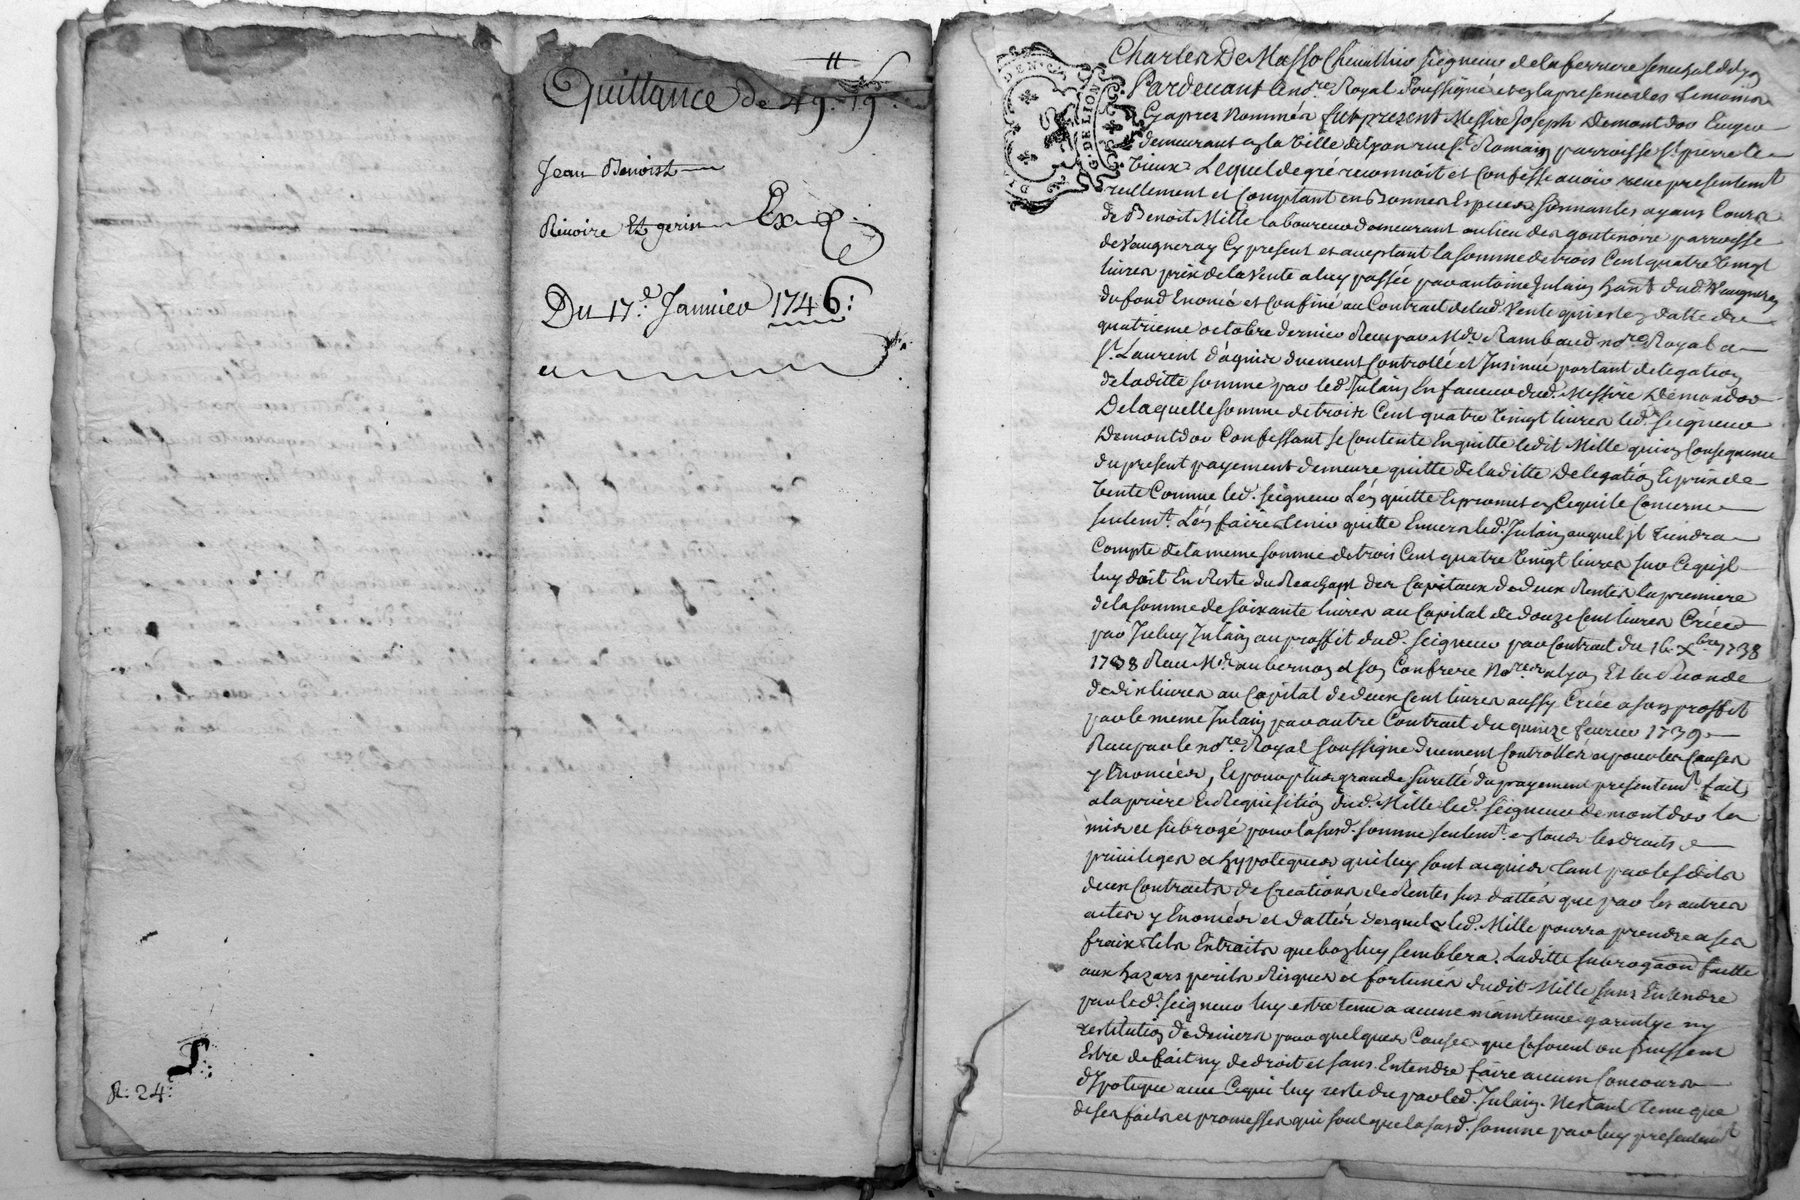 Quittance de 49 ₶ 19 s
Jean Benoist
Rivoire Et gerin Ex
Du 17.e Janvier 1746:
S
R: 24:
GEN. DE LION
Charles De Masso Chevallier seigneur de la ferriere senechal de lyon
Pardevant le no.re Royal soussigné et en la presence des temoins
Cy apres Nommés fut present Messire Joseph Demontdor Ecuyer
demeurant en la ville de lyon rue s.t Romain parroisse s.t pierre le
vieux Lequel de gré reconnoit et Confesse avoir receu presentem.t
reellement et Comptant en Bonnes Especes sonnantes ayans Cours
de Benoit Mille laboureur demeurant au lieu des goutenoire parroisse
de Vaugneray Cy present et aceptant la somme de trois Cent quatre vingt
livres prix de la Vente a luy passée par antoine Julain han.t dud. Vaugneray
du fond Enoncé et Confiné au Contrat de lad. Vente qui est en datte du
quatrieme octobre dernier Receu par M.e Rambaud no.re Royal a
s.t Laurent d'agnir duement Controllé et Insinué portant delegation
de laditte somme par led. Julain En faveur dud. Messire Demondor
De laquelle somme de trois Cent quatre vingt livres led. seigneur
Demontdor Confessant se Contente En quitte ledit Mille qui en Consequence
du present payement demeure quitte de laditte Delegation Et prix de
Vente Comme led. seigneur L'en quitte Et promet en Ce qui le Concerne
seulem.t L'en faire tenir quitte Envers led. Julain auquel jl tiendra
Compte de la meme somme de trois Cent quatre vingt livres sur Ce qu'jl
luy doit En Reste du Reachapt des Capitaux de deux Rentes la premiere
de la somme de soixante livres au Capital de douze Cent livres Créée
par Jceluy Julain au proffit dud. seigneur par Contrat du 16. Xbre 1738
1738 Receu M.e aubernon et son Confrere No.res a lyon Et la seconde
de dix livres au Capital de deux Cent livres aussy Créée a son proffit
par le meme Julain par autre Contrat du quinze fevrier 1739
Receu par le no.re Royal soussigné duement Controllés et pour les Causes
y Enoncées, Et pour plus grande surette du payement presentem.t fait,
a la priere Et Requisition dud. Mille led. seigneur demontdor la
mis et subrogé pour la susd. somme seulem.t en tous les droits
privileges et hypoteques qui luy sont acquis tant par les dits
deux Contracts de Creations de Rentes sus dattés que par les autres
actes y Enoncés et dattés desquels led. Mille pourra prendre a ses
fraix tels Extraits que bon luy semblera, Laditte subrogaôn faitte
aux hazars perils Risques et fortunes dudit Mille sans Entendre
par led. seigneur luy estre tenu a aucune maintenue garentye ny
restitution de deniers pour quelques Causes que ce soient ou puissent
Estre de fait ny de droit et sans Entendre faire aucun Concours
d'Jpoteque avec Ce qui luy reste du par led. Julain. N'estant tenu que
de ses faits et promesses qui sont que la susd. somme par luy presentem.t